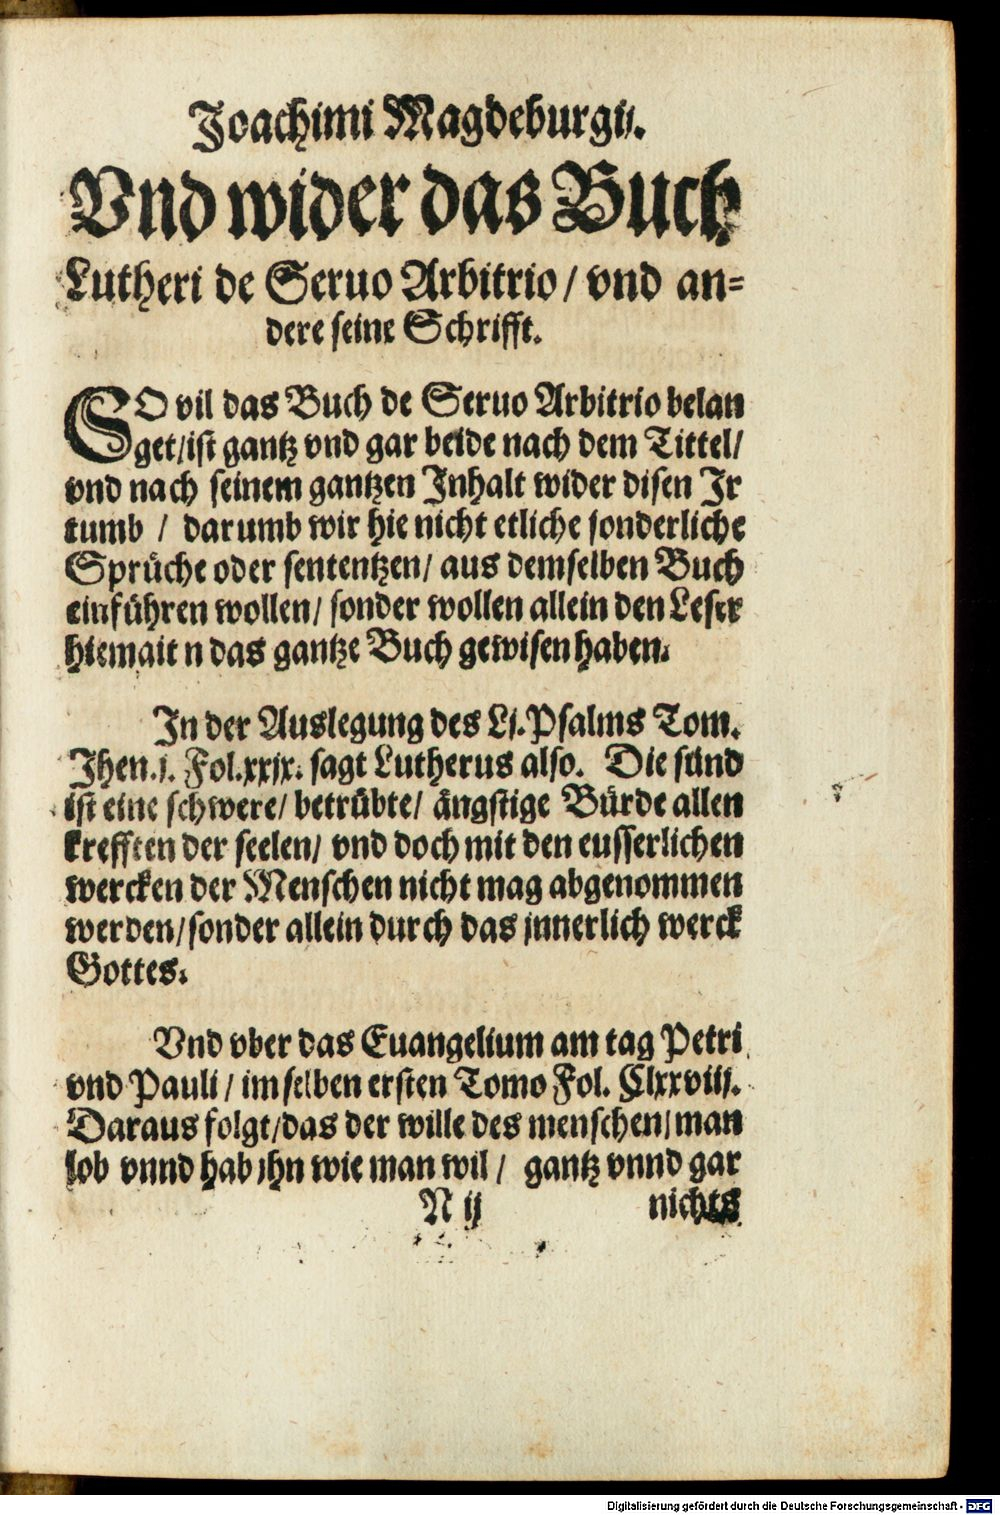 Joachimi Magdeburgij.
Vnd wider das Buch
Lutheri de Seruo Arbitrio / vnd an=
dere seine Schrifft.
SO vil das Buch de Seruo Arbitrio belan
get/ist gantz vnd gar beide nach dem Tittel/
vnd nach seinem gantzen Inhalt wider disen Ir
tumb / darumb wir hie nicht etliche sonderliche
Sprüche oder sententzen/ aus demselben Buch
einführen wollen/ sonder wollen allein den Leser
hiemait n das gantze Buch gewisen haben.
In der Auslegung des Lj. Psalms Tom.
Jhen. j. Fol. xxix. sagt Lutherus also. Die sünd
ist eine schwere/ betrübte/ ängstige Bürde allen
krefften der seelen/ vnd doch mit den eusserlichen
wercken der Menschen nicht mag abgenommen
werden/sonder allein durch das jnnerlich werck
Gottes.
Vnd vber das Euangelium am tag Petri
vnd Pauli / im selben ersten Tomo Fol. Clxxviij.
Daraus folgt/das der wille des menschen/man
lob vnnd hab jhn wie man wil / gantz vnnd gar
N ij nichts
Digitalisierung gefördert durch die Deutsche Forschungsgemeinschaft - DFG